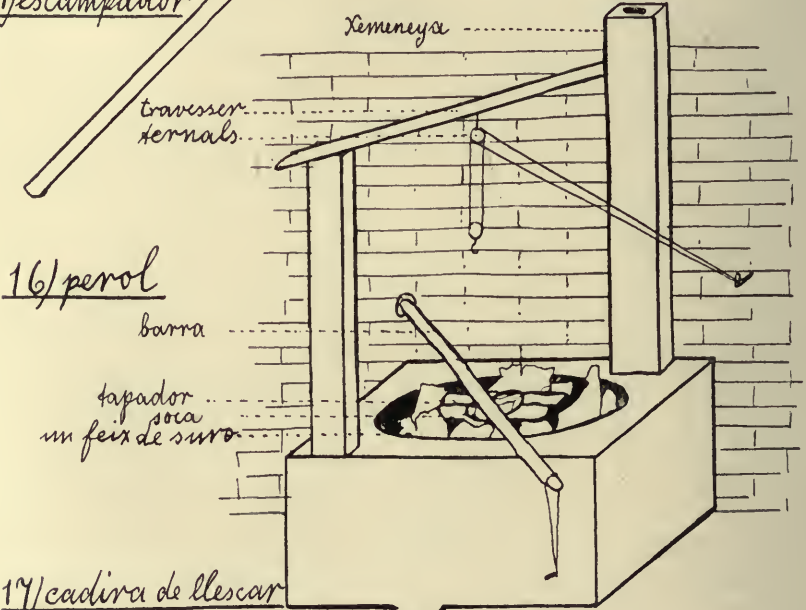 Descampador
Xemeneya
travesser
ternals
16/ perol
barra
tapador
soca
un feix de suro
17/ cadira de llescar